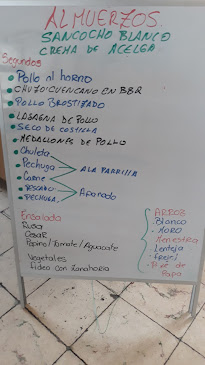 ALMUERZOS.
SANCOCHO BLANCO
CREMA DE ACELGA
Segundos
Pollo al horno
CHUZO CUENCANO EN BBQ
POLLO BROSTIZADO
LASAGNA DE POLLO
SECO DE COSTILLA
MEDALLONES DE POLLO
Chuleta
Pechuga
Carne
A LA PARRILLA
PESCADO
PECHUGA
Apanado
Ensalada
Rusa
Cesar
Pepino/Tomate/Aguacate
Vegetales
Fideo con Zanahoria
ARROZ
Blanco
MORO
Menestra
Lenteja
Frejol
Puré de
Papa